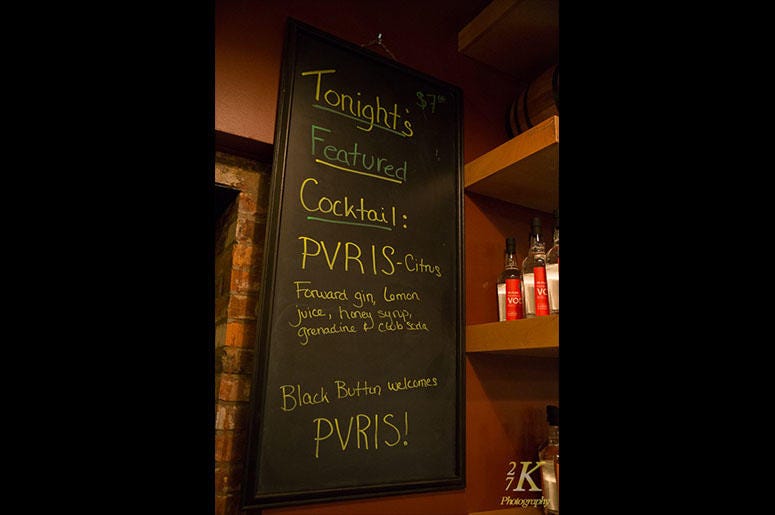 Tonight's
$7⁰⁰
Featured
Cocktail:
PVRIS-Citrus
Forward gin, lemon
juice, honey syrup,
grenadine & club soda
Black Button welcomes
PVRIS!
27K
Photography